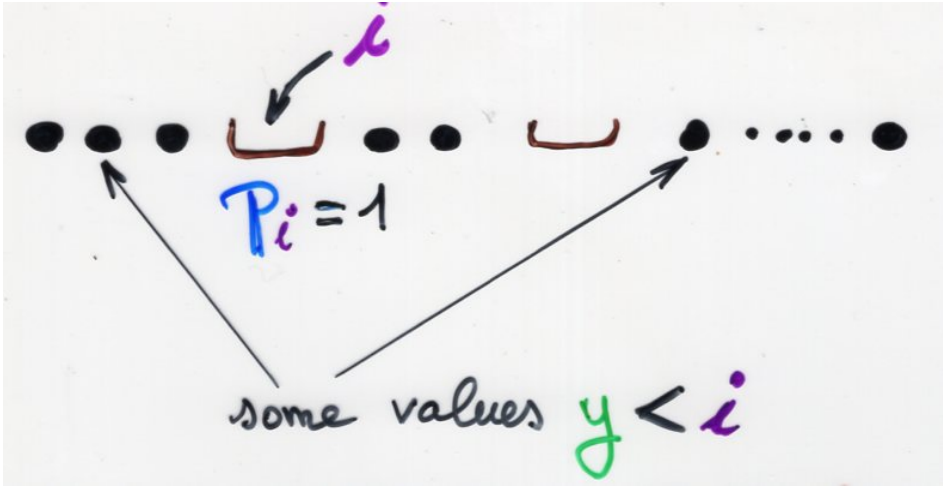 i
P_i = 1
some values y < i